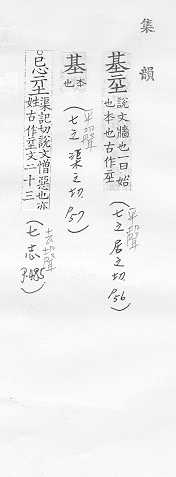 集韻
基 𡊰 說文牆也一曰始
也本也古作𡊰
平聲
(七之 居之切 P56)
基 本
也
平聲
(七之 渠之切 P57)
渠記切說文憎惡也亦
姓古作文二十三
去聲
(七志 P.485)